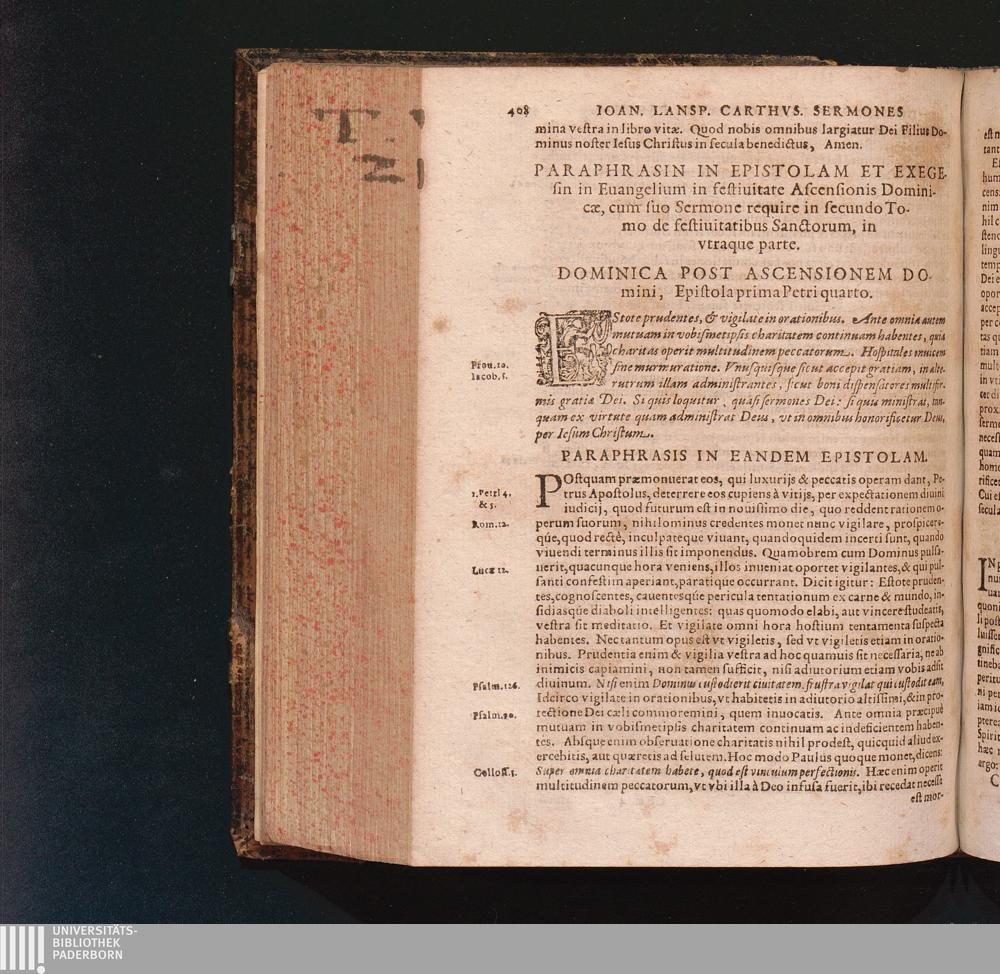 408 IOAN. LANSP. CARTHVS. SERMONES
mina veſtra in libro vitæ. Quod nobis omnibus largiatur Dei Filius Do-
minus noſter Ieſus Chriſtus in ſecula benedictus, Amen.
PARAPHRASIN IN EPISTOLAM ET EXEGE-
ſin in Euangelium in feſtiuitate Aſcenſionis Domini-
cæ, cum ſuo Sermone require in ſecundo To-
mo de feſtiuitatibus Sanctorum, in
vtraque parte.
DOMINICA POST ASCENSIONEM DO-
mini, Epiſtola prima Petri quarto.
EStote prudentes, & vigilate in orationibus. Ante omnia autem
mutuam in vobiſmetipſis charitatem continuam habentes, quia
Prou.10. charitas operit multitudinem peccatorum. Hoſpitales inuicem
Iacob.5. ſine murmuratione. Vnuſquiſque ſicut accepit gratiam, in alte-
rutrum illam adminiſtrantes, ſicut boni diſpenſatores multifor-
mis gratiæ Dei. Si quis loquitur, quaſi ſermones Dei: ſi quis miniſtrat, tan-
quam ex virtute quam adminiſtrat Deus, vt in omnibus honorificetur Deus,
per Ieſum Chriſtum.
PARAPHRASIS IN EANDEM EPISTOLAM.
POſtquam præmonuerat eos, qui luxurijs & peccatis operam dant, Pe-
1.Petri 4. trus Apoſtolus, deterrere eos cupiens à vitijs, per expectationem diuini
& 5. iudicij, quod futurum eſt in nouiſſimo die, quo reddent rationem o-
Rom.12. perum ſuorum, nihilominus credentes monet nunc vigilare, proſpicere-
qúe, quod rectè, inculpateque viuant, quandoquidem incerti ſunt, quando
viuendi terminus illis ſit imponendus. Quamobrem cum Dominus pulſa-
Lucæ 12. uerit, quacunque hora veniens, illos inueniat oportet vigilantes, & qui pul-
ſanti confeſtim aperiant, paratique occurrant. Dicit igitur: Eſtote pruden-
tes, cognoſcentes, cauentesqúe pericula tentationum ex carne & mundo, in-
ſidiasqúe diaboli intelligentes: quas quomodo elabi, aut vincere ſtudeatis,
veſtra ſit meditatio. Et vigilate omni hora hoſtium tentamenta ſuſpecta
habentes. Nec tantum opus eſt vt vigiletis, ſed vt vigiletis etiam in oratio-
nibus. Prudentia enim & vigilia veſtra ad hoc quamuis ſit neceſſaria, ne ab
inimicis capiamini, non tamen ſufficit, niſi adiutorium etiam vobis adſit
Pſalm.126. diuinum. Niſi enim Dominus cuſtodierit ciuitatem, fruſtra vigilat qui cuſtodit eam,
Idcirco vigilate in orationibus, vt habitetis in adiutorio altiſſimi, & in pro-
Pſalm.90. tectione Dei cæli commoremini, quem inuocatis. Ante omnia præcipuè
mutuam in vobiſmetipſis charitatem continuam ac indeficientem haben-
tes. Abſque enim obſeruatione charitatis nihil prodeſt, quicquid aliud ex-
ercebitis, aut quæretis ad ſalutem. Hoc modo Paulus quoque monet, dicens:
Colloſſ.3. Super omnia charitatem habete, quod eſt vinculum perfectionis. Hæc enim operit
multitudinem peccatorum, vt vbi illa à Deo infuſa fuerit, ibi recedat neceſſe
eſt mor-
UNIVERSITÄTS-
BIBLIOTHEK
PADERBORN